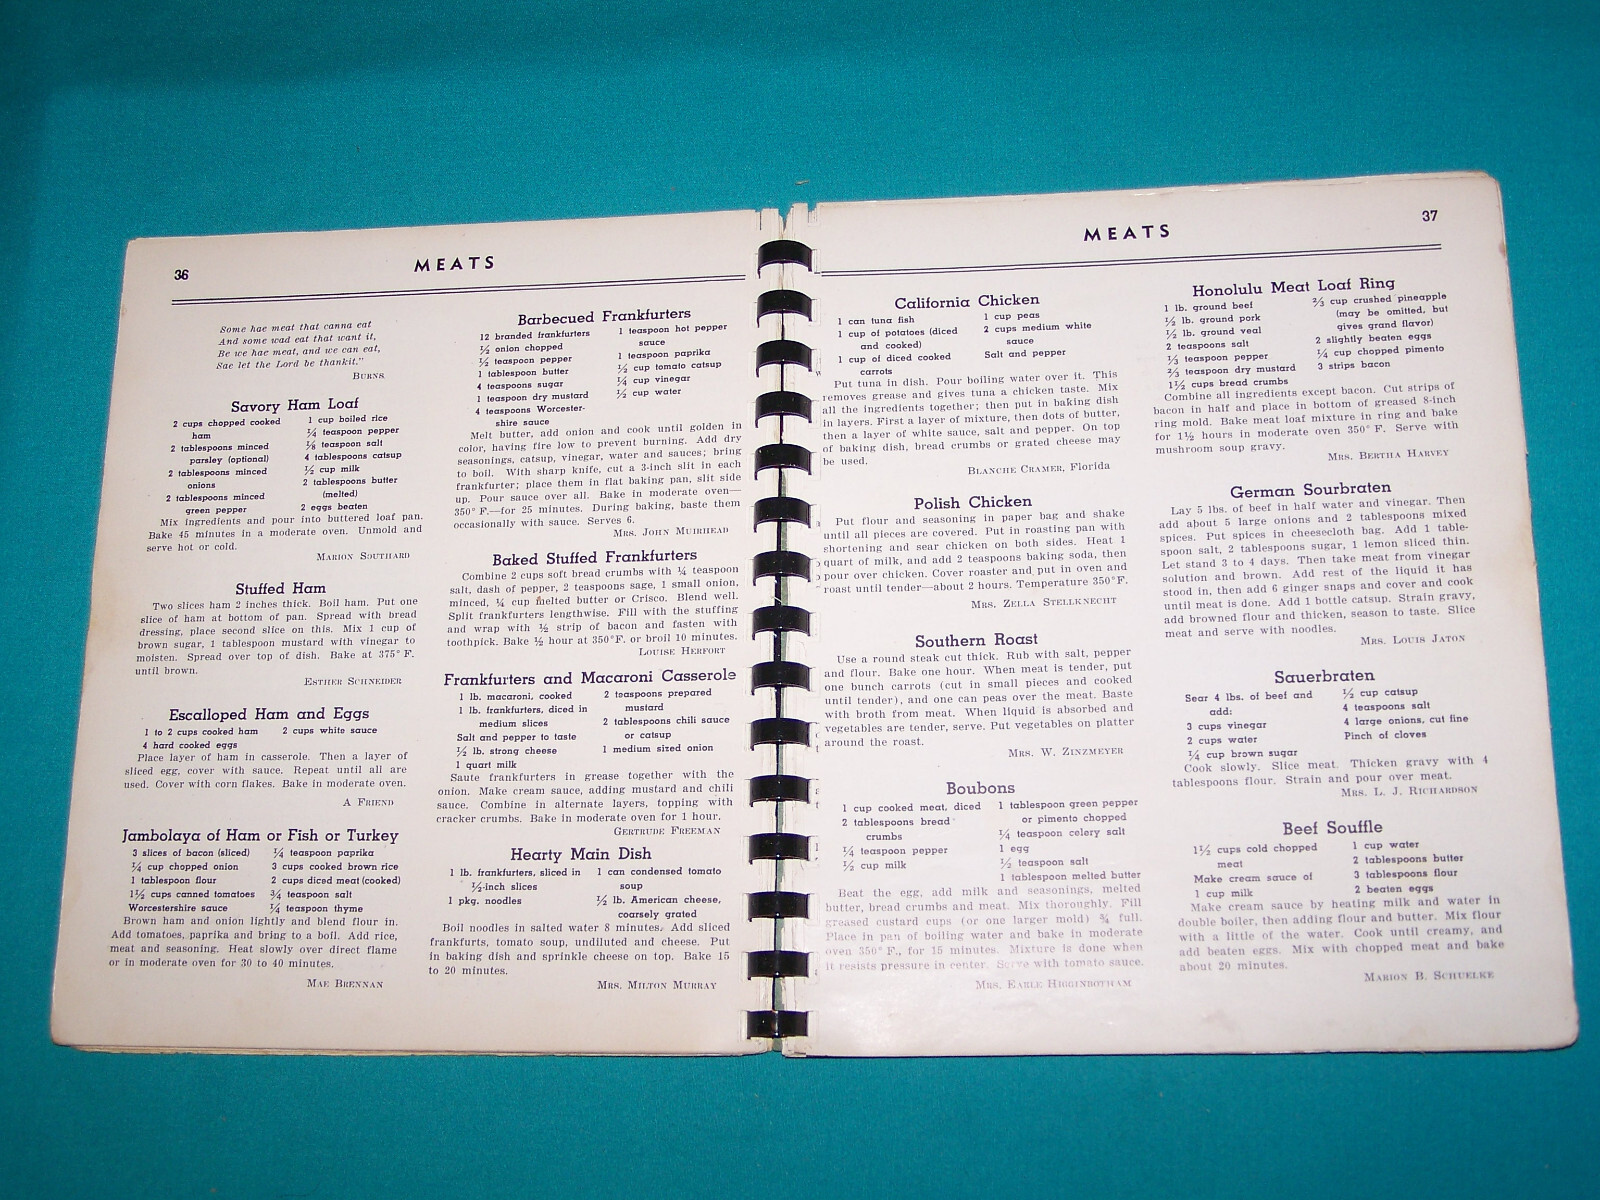 36
MEATS
Some hae meat that canna eat
And some wad eat that want it,
Be we hae meat, and we can eat,
Sae let the Lord be thankit."
BURNS
Savory Ham Loaf
2 cups chopped cooked
ham
2 tablespoons minced
parsley (optional)
2 tablespoons minced
onions
2 tablespoons minced
green pepper
1 cup boiled rice
¼ teaspoon pepper
⅛ teaspoon salt
4 tablespoons catsup
½ cup milk
2 tablespoons butter
(melted)
2 eggs beaten
Mix ingredients and pour into buttered loaf pan.
Bake 45 minutes in a moderate oven. Unmold and
serve hot or cold.
MARION SOUTHARD
Stuffed Ham
Two slices ham 2 inches thick. Boil ham. Put one
slice of ham at bottom of pan. Spread with bread
dressing, place second slice on this. Mix 1 cup of
brown sugar, 1 tablespoon mustard with vinegar to
moisten. Spread over top of dish. Bake at 375° F.
until brown.
ESTHER SCHNEIDER
Escalloped Ham and Eggs
1 to 2 cups cooked ham
4 hard cooked eggs
2 cups white sauce
Place layer of ham in casserole. Then a layer of
sliced egg, cover with sauce. Repeat until all are
used. Cover with corn flakes. Bake in moderate oven.
A FRIEND
Jambolaya of Ham or Fish or Turkey
3 slices of bacon (sliced)
¼ cup chopped onion
1 tablespoon flour
1½ cups canned tomatoes
Worcestershire sauce
¼ teaspoon paprika
3 cups cooked brown rice
2 cups diced meat (cooked)
¾ teaspoon salt
¼ teaspoon thyme
Brown ham and onion lightly and blend flour in.
Add tomatoes, paprika and bring to a boil. Add rice,
meat and seasoning. Heat slowly over direct flame
or in moderate oven for 30 to 40 minutes.
MAE BRENNAN
Barbecued Frankfurters
12 branded frankfurters
½ onion chopped
½ teaspoon pepper
1 tablespoon butter
4 teaspoons sugar
1 teaspoon dry mustard
4 teaspoons Worcester-
shire sauce
1 teaspoon hot pepper
sauce
1 teaspoon paprika
½ cup tomato catsup
¼ cup vinegar
½ cup water
Melt butter, add onion and cook until golden in
color, having fire low to prevent burning. Add dry
seasonings, catsup, vinegar, water and sauces; bring
to boil. With sharp knife, cut a 3-inch slit in each
frankfurter; place them in flat baking pan, slit side
up. Pour sauce over all. Bake in moderate oven—
350° F.—for 25 minutes. During baking, baste them
occasionally with sauce. Serves 6.
MRS. JOHN MUIRHEAD
Baked Stuffed Frankfurters
Combine 2 cups soft bread crumbs with ¼ teaspoon
salt, dash of pepper, 2 teaspoons sage, 1 small onion,
minced, ¼ cup melted butter or Crisco. Blend well.
Split frankfurters lengthwise. Fill with the stuffing
and wrap with ½ strip of bacon and fasten with
toothpick. Bake ½ hour at 350°F. or broil 10 minutes.
LOUISE HERFORT
Frankfurters and Macaroni Casserole
1 lb. macaroni, cooked
1 lb. frankfurters, diced in
medium slices
Salt and pepper to taste
½ lb. strong cheese
1 quart milk
2 teaspoons prepared
mustard
2 tablespoons chili sauce
or catsup
1 medium sized onion
Saute frankfurters in grease together with the
onion. Make cream sauce, adding mustard and chili
sauce. Combine in alternate layers, topping with
cracker crumbs. Bake in moderate oven for 1 hour.
GERTRUDE FREEMAN
Hearty Main Dish
1 lb. frankfurters, sliced in
½-inch slices
1 pkg. noodles
1 can condensed tomato
soup
½ lb. American cheese,
coarsely grated
Boil noodles in salted water 8 minutes. Add sliced
frankfurts, tomato soup, undiluted and cheese. Put
in baking dish and sprinkle cheese on top. Bake 15
to 20 minutes.
MRS. MILTON MURRAY
MEATS
37
California Chicken
1 can tuna fish
1 cup of potatoes (diced
and cooked)
1 cup of diced cooked
carrots
1 cup peas
2 cups medium white
sauce
Salt and pepper
Put tuna in dish. Pour boiling water over it. This
removes grease and gives tuna a chicken taste. Mix
all the ingredients together; then put in baking dish
in layers. First a layer of mixture, then dots of butter,
then a layer of white sauce, salt and pepper. On top
of baking dish, bread crumbs or grated cheese may
be used.
BLANCHE CRAMER, Florida
Polish Chicken
Put flour and seasoning in paper bag and shake
until all pieces are covered. Put in roasting pan with
shortening and sear chicken on both sides. Heat 1
quart of milk, and add 2 teaspoons baking soda, then
pour over chicken. Cover roaster and put in oven and
roast until tender—about 2 hours. Temperature 350°F.
MRS. ZELLA STELLKNECHT
Southern Roast
Use a round steak cut thick. Rub with salt, pepper
and flour. Bake one hour. When meat is tender, put
one bunch carrots (cut in small pieces and cooked
until tender), and one can peas over the meat. Baste
with broth from meat. When liquid is absorbed and
vegetables are tender, serve. Put vegetables on platter
around the roast.
MRS. W. ZINZMEYER
Boubons
1 cup cooked meat, diced
2 tablespoons bread
crumbs
¼ teaspoon pepper
½ cup milk
1 tablespoon green pepper
or pimento chopped
¼ teaspoon celery salt
1 egg
½ teaspoon salt
1 tablespoon melted butter
Beat the egg, add milk and seasonings, melted
butter, bread crumbs and meat. Mix thoroughly. Fill
greased custard cups (or one larger mold) ¾ full.
Place in pan of boiling water and bake in moderate
oven 350° F., for 15 minutes. Mixture is done when
it resists pressure in center. Serve with tomato sauce.
MRS. EARLE HIGGINBOTHAM
Honolulu Meat Loaf Ring
1 lb. ground beef
½ lb. ground pork
½ lb. ground veal
2 teaspoons salt
⅓ teaspoon pepper
⅔ teaspoon dry mustard
1½ cups bread crumbs
⅔ cup crushed pineapple
(may be omitted, but
gives grand flavor)
2 slightly beaten eggs
¼ cup chopped pimento
3 strips bacon
Combine all ingredients except bacon. Cut strips of
bacon in half and place in bottom of greased 8-inch
ring mold. Bake meat loaf mixture in ring and bake
for 1½ hours in moderate oven 350° F. Serve with
mushroom soup gravy.
MRS. BERTHA HARVEY
German Sourbraten
Lay 5 lbs. of beef in half water and vinegar. Then
add about 5 large onions and 2 tablespoons mixed
spices. Put spices in cheesecloth bag. Add 1 table-
spoon salt, 2 tablespoons sugar, 1 lemon sliced thin.
Let stand 3 to 4 days. Then take meat from vinegar
solution and brown. Add rest of the liquid it has
stood in, then add 6 ginger snaps and cover and cook
until meat is done. Add 1 bottle catsup. Strain gravy,
add browned flour and thicken, season to taste. Slice
meat and serve with noodles.
MRS. LOUIS JATON
Sauerbraten
Sear 4 lbs. of beef and
add:
3 cups vinegar
2 cups water
¼ cup brown sugar
½ cup catsup
4 teaspoons salt
4 large onions, cut fine
Pinch of cloves
Cook slowly. Slice meat. Thicken gravy with 4
tablespoons flour. Strain and pour over meat.
MRS. L. J. RICHARDSON
Beef Souffle
1½ cups cold chopped
meat
Make cream sauce of
1 cup milk
1 cup water
2 tablespoons butter
3 tablespoons flour
2 beaten eggs
Make cream sauce by heating milk and water in
double boiler, then adding flour and butter. Mix flour
with a little of the water. Cook until creamy, and
add beaten eggs. Mix with chopped meat and bake
about 20 minutes.
MARION B. SCHUELKE